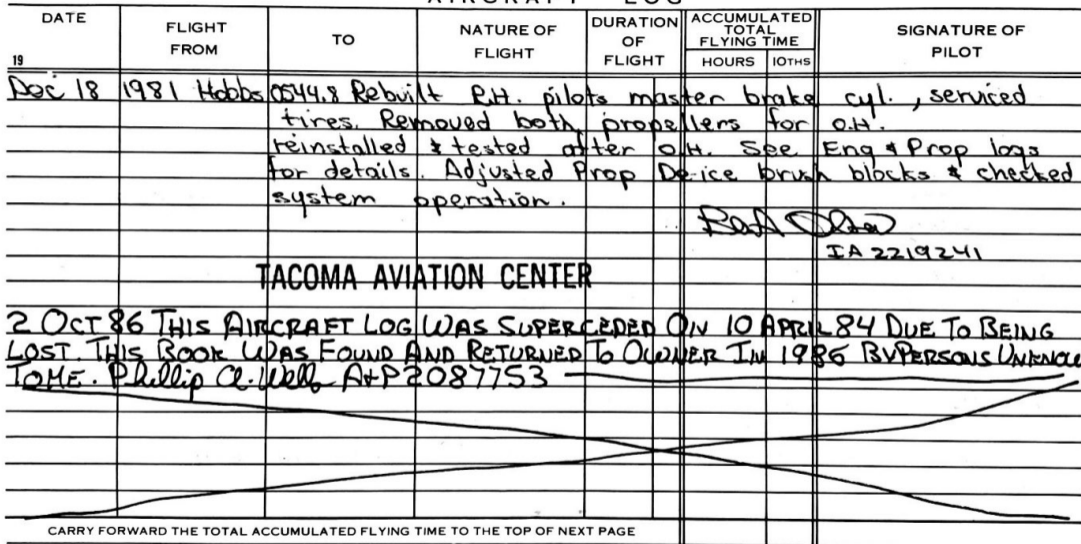 AIRCRAFT LOG
DATE
19
FLIGHT
FROM
TO
NATURE OF
FLIGHT
DURATION
OF
FLIGHT
ACCUMULATED
TOTAL
FLYING TIME
HOURS
10THS
SIGNATURE OF
PILOT
Dec 18 1981 Hobbs 0544.8 Rebuilt R.H. pilots master brake cyl., serviced
tires. Removed both propellers for O.H.
reinstalled & tested after O.H. See Eng & Prop logs
for details. Adjusted Prop De-ice brush blocks & checked
system operation.
IA 2219241
TACOMA AVIATION CENTER
2 OCT 86 THIS AIRCRAFT LOG WAS SUPERCEDED ON 10 APRIL 84 DUE TO BEING
LOST. THIS BOOK WAS FOUND AND RETURNED TO OWNER IN 1986 BY PERSONS UNKNOW
TO ME. Phillip A&P 2087753
CARRY FORWARD THE TOTAL ACCUMULATED FLYING TIME TO THE TOP OF NEXT PAGE